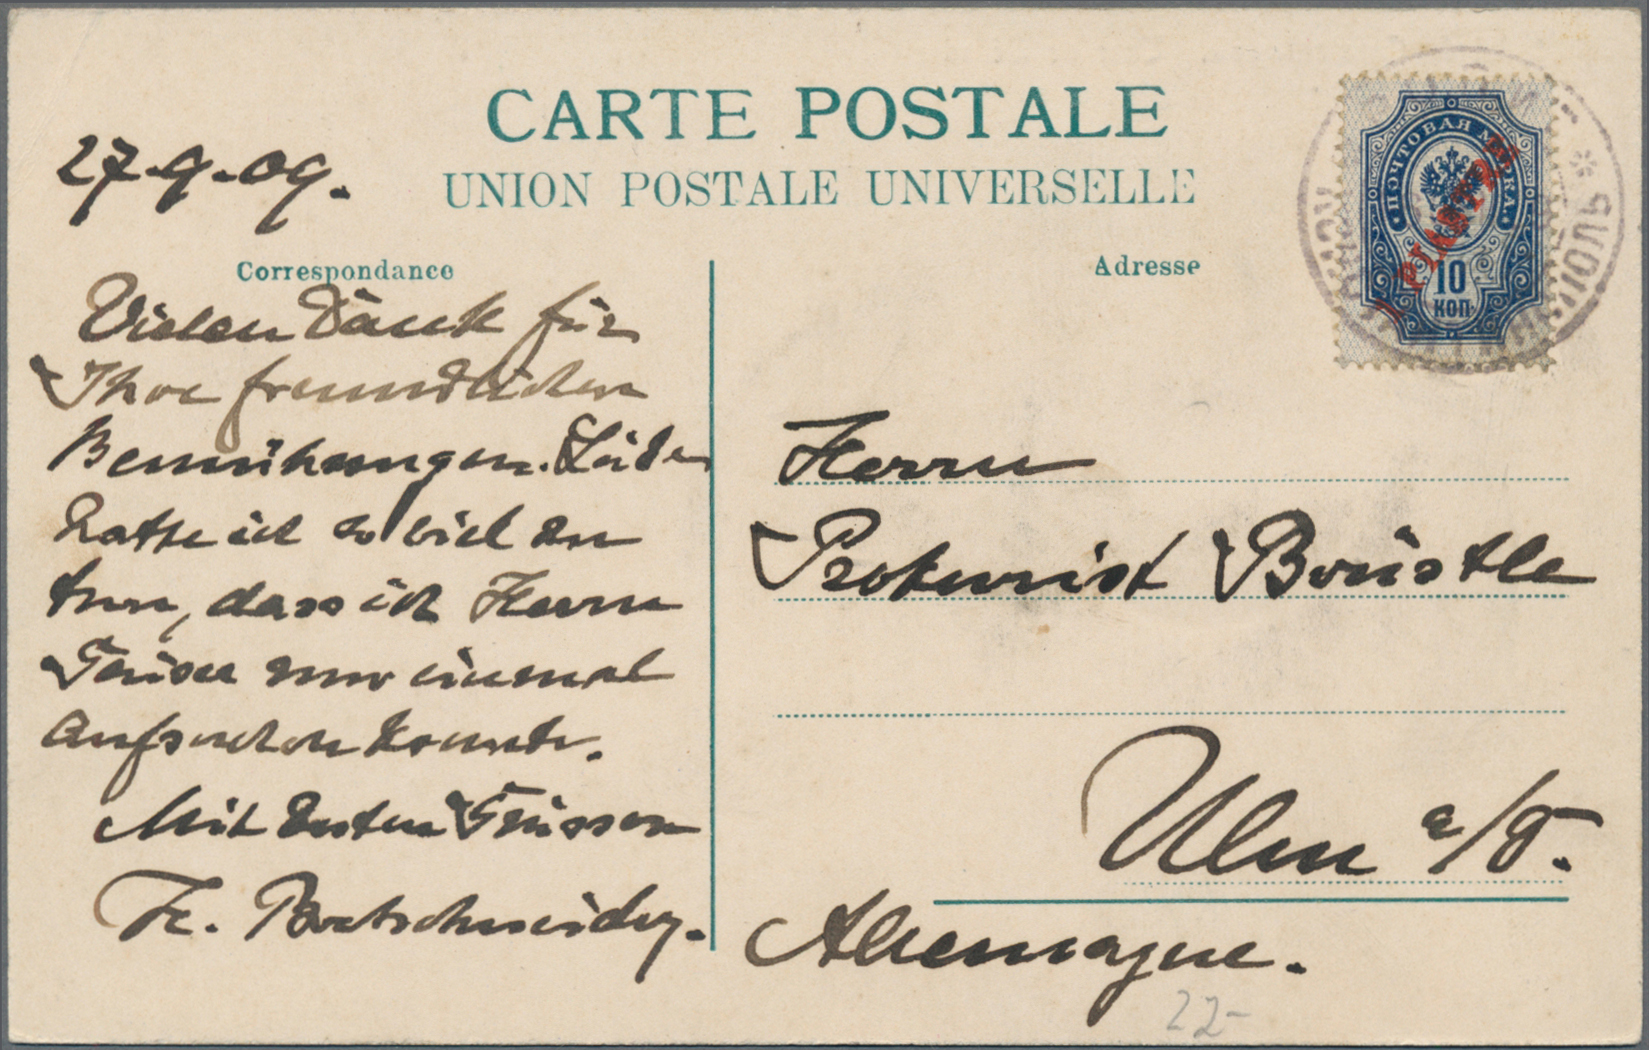 CARTE POSTALE
UNION POSTALE UNIVERSELLE
27.9.09.
Correspondance
Vielen Dank für
Ihre freundlichen
Bemühungen. Leider
hatte ich so viel zu
tun, dass ich Herrn
nur einmal
aufsuchen konnte.
Mit besten Grüssen
Fr. Bretschneider.
Adresse
ПОЧТОВАЯ МАРКА
1 PIASTRE
10
КОП.
Herrn
Prokurist Brüstle
Ulm a/D.
Allemagne.
22-